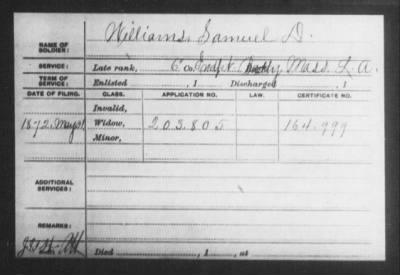 NAME OF SOLDIER: Williams, Samuel D.
SERVICE: Late rank, Mass. L. A.
TERM OF SERVICE: Enlisted , 1 Discharged , 1
DATE OF FILING. CLASS. APPLICATION NO. LAW. CERTIFICATE NO.
Invalid,
1872 May Widow, 203.805 164.999
Minor,
ADDITIONAL SERVICES:
REMARKS:
Died , 1 , at